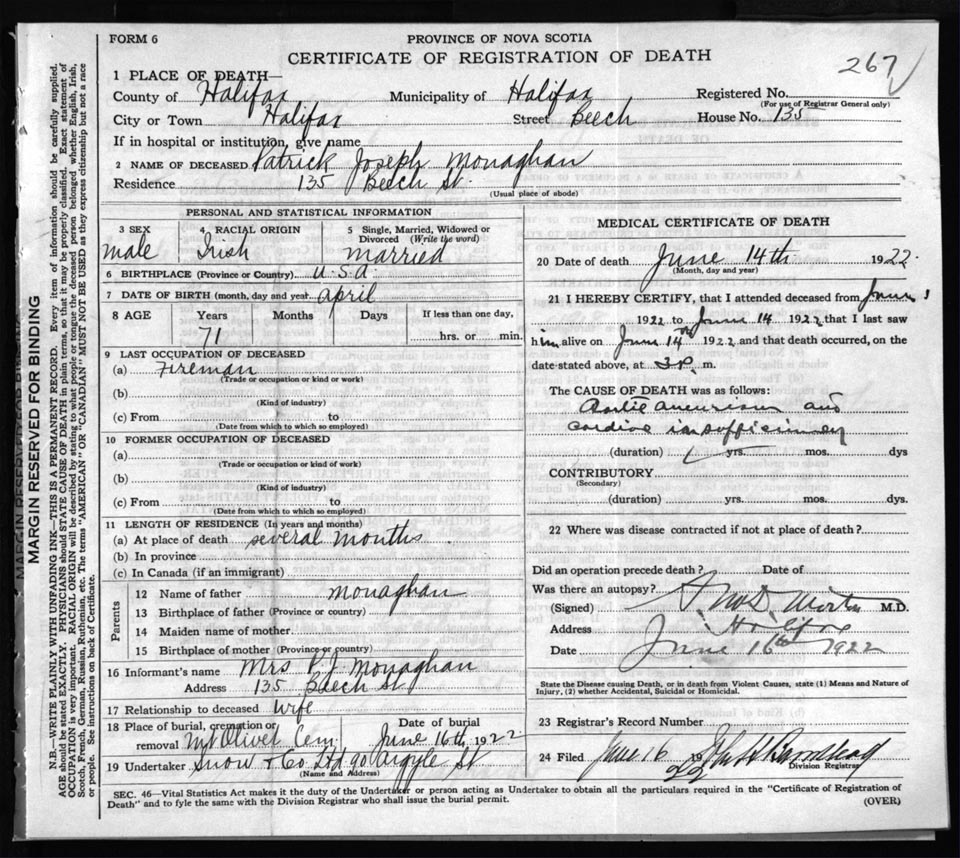 FORM 6
PROVINCE OF NOVA SCOTIA
CERTIFICATE OF REGISTRATION OF DEATH
267
1 PLACE OF DEATH—
County of Halifax Municipality of Halifax Registered No.
(For use of Registrar General only)
City or Town Halifax Street Beech House No. 135
If in hospital or institution, give name
2 NAME OF DECEASED Patrick Joseph Monaghan
Residence 135 Beech St.
(Usual place of abode)
PERSONAL AND STATISTICAL INFORMATION
3 SEX 4 RACIAL ORIGIN 5 Single, Married, Widowed or Divorced (Write the word)
male Irish married
6 BIRTHPLACE (Province or Country) U.S.A.
7 DATE OF BIRTH (month, day and year) April
8 AGE Years Months Days If less than one day,
71 hrs. or min.
9 LAST OCCUPATION OF DECEASED
(a) Fireman
(Trade or occupation or kind or work)
(b)
(Kind of industry)
(c) From to
(Date from which to which so employed)
10 FORMER OCCUPATION OF DECEASED
(a)
(Trade or occupation or kind of work)
(b)
(Kind of industry)
(c) From to
(Date from which to which so employed)
11 LENGTH OF RESIDENCE (In years and months)
(a) At place of death several months
(b) In province
(c) In Canada (if an immigrant)
Parents
12 Name of father Monaghan
13 Birthplace of father (Province or country)
14 Maiden name of mother
15 Birthplace of mother (Province or country)
16 Informant's name Mrs P. J. Monaghan
Address 135 Beech St
17 Relationship to deceased wife
18 Place of burial, cremation or removal Mt Olivet Cem. Date of burial June 16th 1922
19 Undertaker Snow & Co Ltd 90 Argyle St
(Name and Address)
MEDICAL CERTIFICATE OF DEATH
20 Date of death June 14th 1922.
(Month, day and year)
21 I HEREBY CERTIFY, that I attended deceased from June 1
1922 to June 14 1922 that I last saw
him alive on June 14th 1922 and that death occurred, on the
date stated above, at 3 P. m.
The CAUSE OF DEATH was as follows:
Aortic aneurism and
cardiac insufficiency
(duration) 1 yrs. mos. dys
CONTRIBUTORY
(Secondary)
(duration) yrs. mos. dys.
22 Where was disease contracted if not at place of death?
Did an operation precede death? Date of
Was there an autopsy?
(Signed) M.D.
Address Halifax
Date June 16th 1922
State the Disease causing Death, or in death from Violent Causes, state (1) Means and Nature of
Injury, (2) whether Accidental, Suicidal or Homicidal.
23 Registrar's Record Number
24 Filed June 16 1922
Division Registrar
SEC. 46—Vital Statistics Act makes it the duty of the Undertaker or person acting as Undertaker to obtain all the particulars required in the "Certificate of Registration of
Death" and to fyle the same with the Division Registrar who shall issue the burial permit.
(OVER)
MARGIN RESERVED FOR BINDING
N.B.—WRITE PLAINLY WITH UNFADING INK—THIS IS A PERMANENT RECORD. Every item of information should be carefully supplied.
AGE should be stated EXACTLY. PHYSICIANS should STATE CAUSE OF DEATH in plain terms, so that it may be properly classified. Exact statement of
OCCUPATION is very important. RACIAL ORIGIN will be described by stating to what people or tongue the deceased person belonged whether English, Irish,
Scotch, French, German, Russian, Ruthenian, etc. The terms "AMERICAN" OR "CANADIAN" MUST NOT BE USED as they express citizenship but not a race
or people. See instructions on back of Certificate.